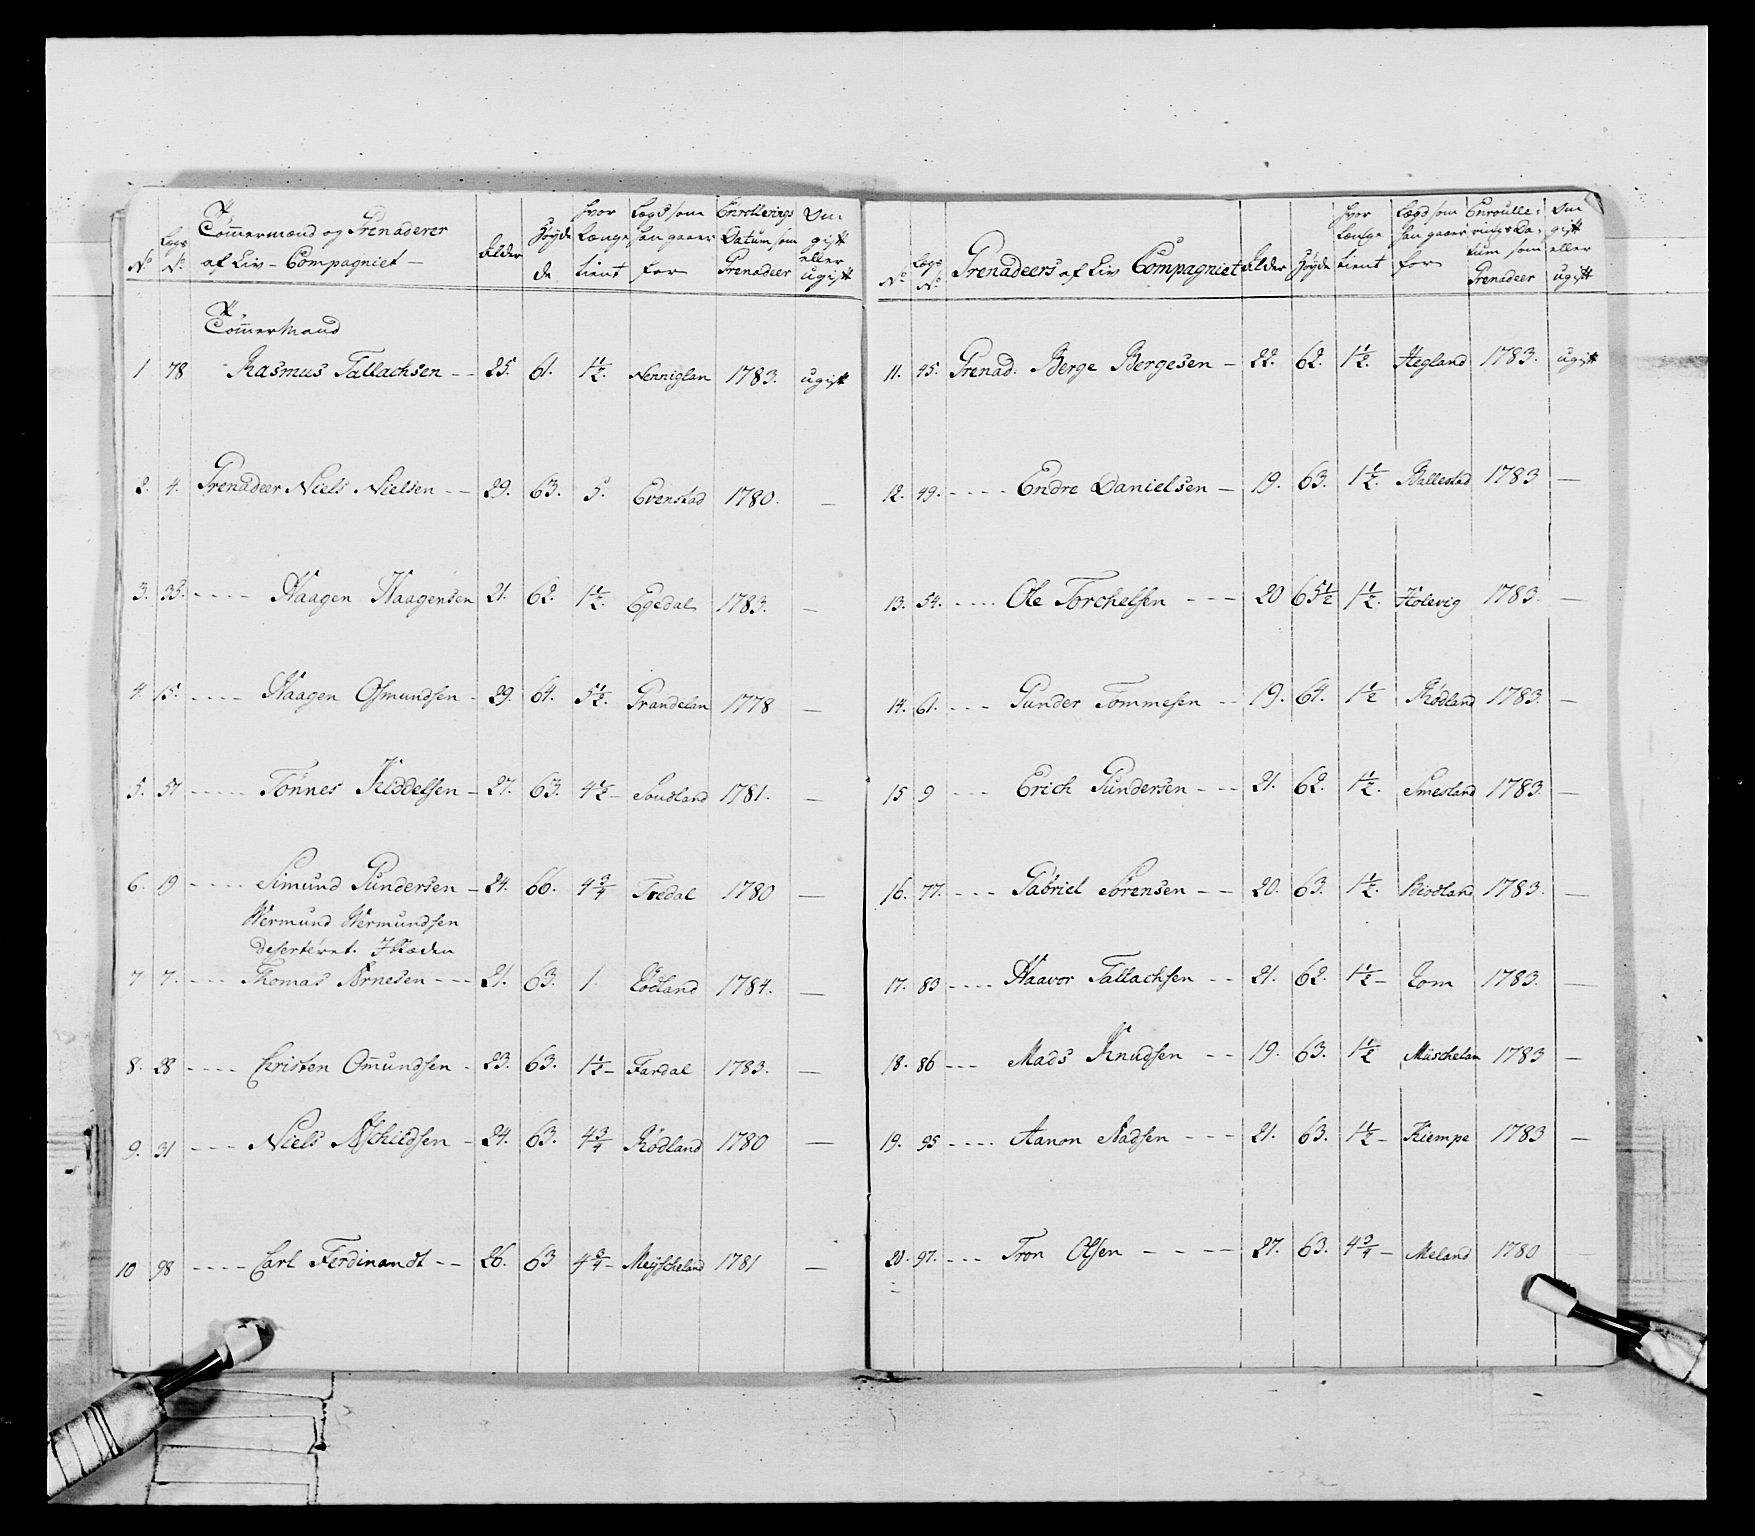 No Lægs No. Tömmermænd og Grenaderer af Liv-Compagniet Alder Höyde hvor længe tient Lægd som han gaaer for Enrollerings Datum som Grenadeer Om gift eller ugift
Tömmermand
1 78 Rasmus Tallachsen 25. 61. 1½. Nenniglan 1783. ugift
2. 4. Grenadeer Niels Nielsen 29. 63. 5. Evenstad 1780. —
3. 35. Haagen Haagensen 21. 62. 1½. Egedal 1783. —
4 15. Haagen Osmundsen 29. 64. 5½. Grandelan 1778 —
5. 57 Tönnes Kiddelsen 27. 63. 4½ Soudland 1781. —
6. 19 Simund Gundersen 24. 66. 4¾ Tredal 1780 —
Wermund Wermundsen
deserteret. I Stæden
7 7. Thomas Arnesen 21. 63. 1. Rödland 1784. —
8. 28 Christen Omundsen 23. 63. 1½ Fardal 1783. —
9. 31 Niels Aschildsen 24. 63. 4¾ Rödland 1780 —
10 98 Carl Ferdinandt 26. 63 4¾ Meyscheland 1781 —
No. Lægs No. Grenadeers af Liv Compagniet Alder Höyde hvor længe tient Lægd som han gaaer for Enroulle-rings Da-tum som Grenadeer Om gift eller ugift
11. 45. Grenad. Berge Bergesen 22. 62. 1½. Hegland 1783. ugift
12. 49. Endre Danielsen 19. 63. 1½. Ballestad 1783 —
13. 54. Ole Torchelsen 20 65½ 1½. Holevig 1783. —
14. 61. Gunder Tommesen 19. 64. 1½ Rödland 1783. —
15 9 Erich Gundersen 21. 62. 1½. Smestand 1783. —
16. 77. Gabriel Sörensen 20. 63. 1½. Biodland 1783. —
17. 83 Haavor Tallachsen 21. 62. 1½ Tom 1783. —
18. 86 Mads Knudsen 19. 63. 1½ Müschelan 1783 —
19. 95 Aanon Aadsen 21. 63. 1½ Kiempe 1783 —
20. 97. Tron Olsen 27. 63. 4¾ Meland 1780 —